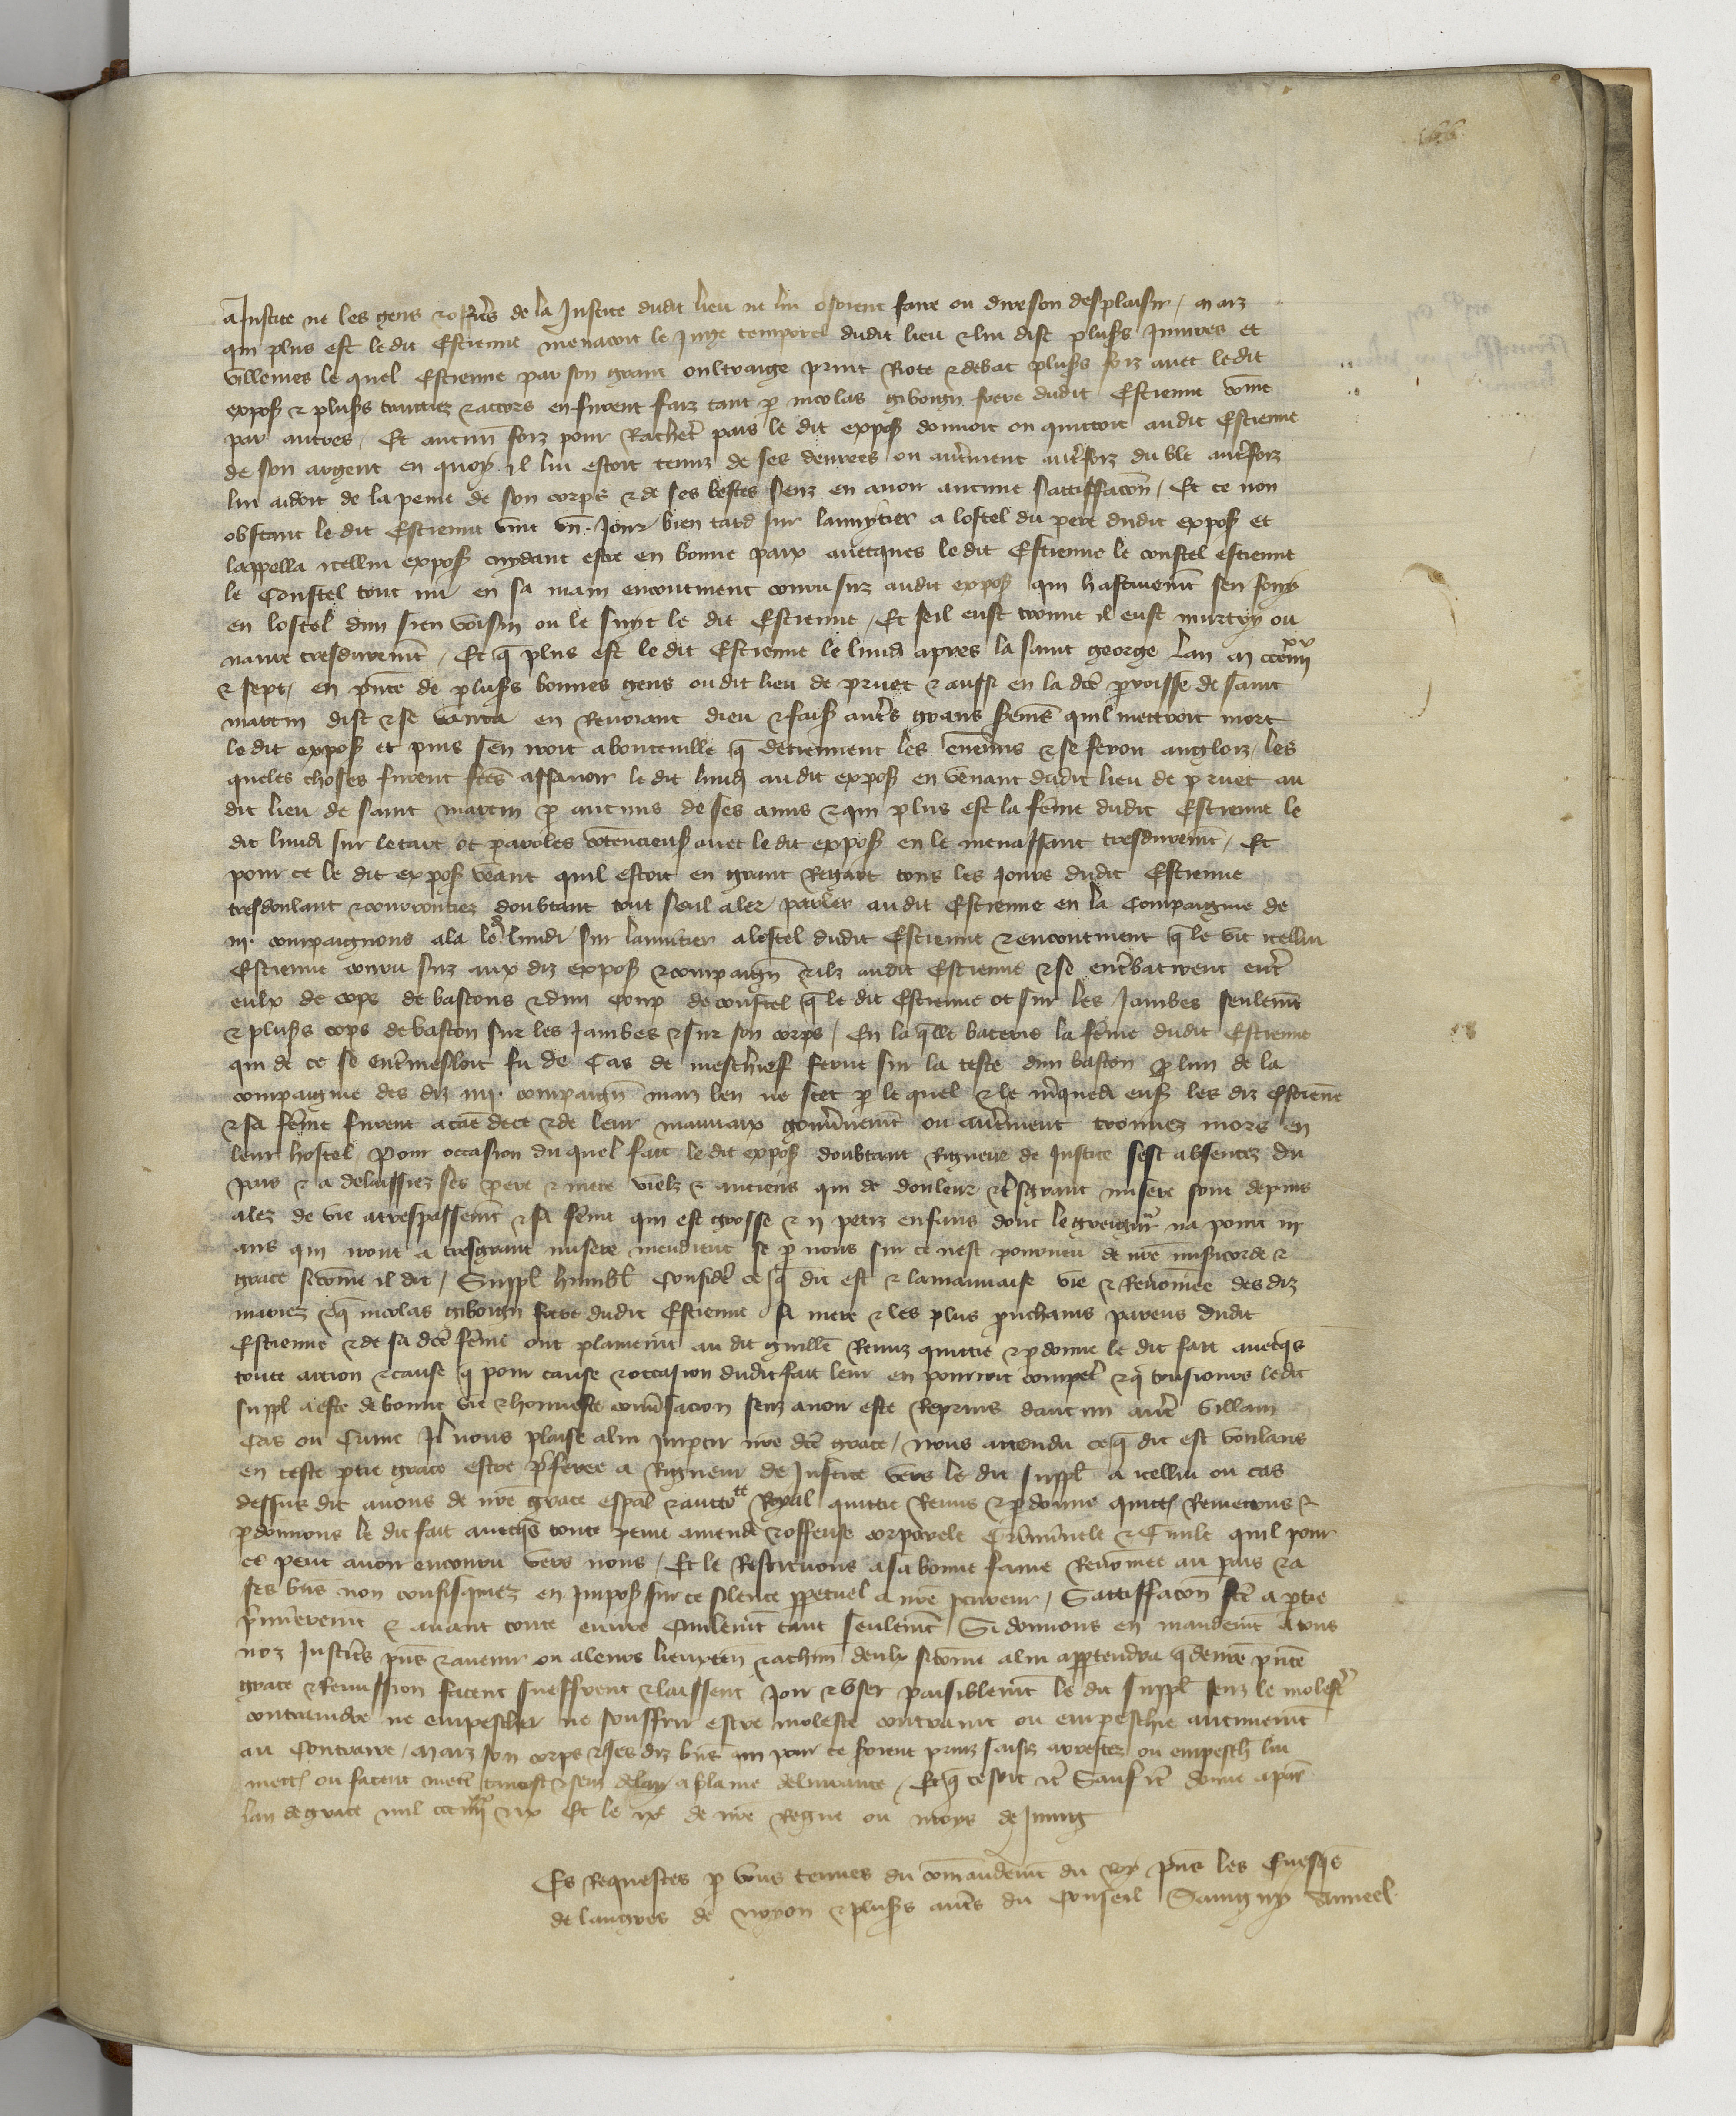 a Justice ne les gens & officrs de la Justice dudit lieu ne lui osoient faire ou dire son desplaisir / Mais
qui plus est ledit Estienne menacoit le Juge temporel dudit lieu & lui dist pluss Injures et
villenies le quel Estienne par son grant oultraige print Rote & debat pluss foiz avec ledit
expos & pluss traictiez & accors en furent faiz tant p nicolas giboign frere dudit Estienne come
par autres / Et aucun foiz pour Rachetr pais le dit expos donnoit ou quittoit audit Estienne
de son argent en quoy il lui estoit tenuz de ses denrees ou autrment autrfoiz du ble autrfoiz
lui aidoit de la peine de son corps & de ses bestes senz en avoir aucune sattiffacon / Et ce non
obstant le dit Estienne vint un Jour bien tard sur lannytier a lostel du pere dudit expos et
lappella icellui expos cuydant estre en bonne paix avecques ledit Estienne le coustel estienne
le Coustel tout nu en sa main encontinent couru suz audit expos qui hastivemt sen fouy
en lostel dun sien voisin ou le suyt le dit Estienne / Et seil eust trouve il eust murtry ou
navre tresdurement / Et q plus est ledit Estienne le lundi apres la saint george Lan M CCCIIIIxx
& sept / en pnce de pluss bonnes gens oudit lieu de pruet & aussi en la dce proisse de saint
martin dist & se vanta en Renoiant dieu & fais autrs grans sermes quil mettroit mort
le dit expos et puis sen iroit a bouteville q detiennent les ennemis & se feroit anglois / les
queles choses furent fces assavoir le dit lundi audit expos en venant dudit lieu de pruet au
dit lieu de saint martin p aucuns de ses amis & qui plus est la feme dudit Estienne le
dit lundi sur le tart ot paroles contencieuss avec ledit expos en le menassant tresduremt / Et
pour ce le dit expos veant quil estoit en grant Regart tous les Jours dudit Estienne
tresdoulant & courrouciez doubtant tout seul aler parler audit Estienne en la Compaignie de
III compaignons ala led lundi sur lannutier a lostel dudit Estienne & encontinent q le vit icellui
Estienne couru suz aux diz expos & compaign & ilz audit Estienne & se entrbatirent entr
eulx de cops de bastons & dun coup de coustel q le dit Estienne ot sur les Jambes seulemt
& pluss cops de baston sur les Jambes & sur son corps / En la qlle baterie la feme dudit Estienne
qui de ce se entrmesloit fu de Cas de meschief ferue sur la teste dun baston p lun de la
compaignie des diz IIII compaign mais len ne scet p le quel & le mrquedi ens les diz Estienne
& sa feme furent a cause dece & de leur mauvaix gouvrnemt ou autrment trouvez mors en
leur hostel / Pour occasion du quel fait ledit expos doubtant Rigueur de Justice sest absentez du
pais & a delaissiez ses pere & mere vielz & anciens qui de douleur & tresgrant misere sont depuis
alez de vie a trespassemt & sa feme qui est grosse & II petiz enfans dont le greigneur na point III
ans qui iront a tresgrant misere mendient se p nous sur ce nest pourveu de nre misicorde &
grace sicome il dit / Suppl humbl Consider ce q dit est & la mauvaise vie & Renomee des diz
mariez & q nicolas giboign frere dudit Estienne sa mere & les plus prchains parens dudit
Estienne & de sa dce feme ont plainemt au dit guille Remiz quittie & pdonne le dit fait avecqs
toute action & cause q pour cause & occasion dudit fait leur en pourroit competr & q tousiours ledit
suppl a este de bonne vie & honneste convrsacion senz avoir este Reprins daucun autr villain
Cas ou Crime Il nous plaise a lui Impartir nre dce grace / Nous attendu ce q dit est voulans
en ceste ptie grace estre prferee a Rigueur de Justice vers le dit suppl a icellui ou cas
dessus dit avons de nre grace espal & auctote Royal quittie Remis & pdonne quictos Remetons &
pdonnons le dit fait avecqs toute peine amende & offense corporele Criminele & Civile quil pour
ce peut avoir encouru vers nous / Et le Restituons a sa bonne fame Renomee au pais & a
ses bns non confisquiez en Impos sur ce silence ppetuel a nre procureur / Sattiffacon fce a ptie
prmierement & avant toute euvre Civilemt tant seulemt Si donnons en mandemt a tous
noz Justicrs pns & avenir ou a leurs lieuxten & a chun deulx sicome a lui apptendra q de nre pnce
grace & Remission facent sueffrent & laissent Joir & user paisiblemt le dit suppl senz le molestr
contraindre ne empescher ne souffrir estre moleste contraint ou empeschie aucunemt
au Contraire / Mais son corps & ses diz bns qui pour ce seroient prins saisiz arrestez ou empesch lui
mettr ou facent mettre tantost & senz delay a plaine delivrance / Et q ce soit &c Sauf &c donne a paris
lan de grace mil ccc IIIIxx IX Et le IXe de nre Regne ou moys de Juing
Es Requestes p vous tenues du comandemt du Roy pns les Evesqs
de langres de noyon & pluss autrs du Conseil Sauvigny